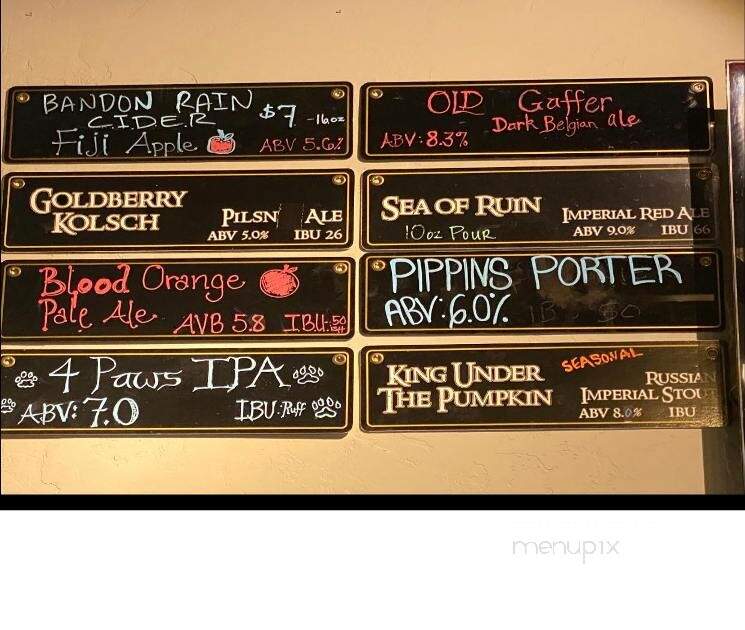 BANDON RAIN
CIDER $7 -16oz
Fiji Apple ABV 5.6%
OLD Gaffer
Dark Belgian ale
ABV: 8.3%
GOLDBERRY
KOLSCH PILSN ALE
ABV 5.0% IBU 26
SEA OF RUIN IMPERIAL RED ALE
10oz Pour ABV 9.0% IBU 66
Blood Orange
Pale Ale AVB 5.8 IBU:50
ish
PIPPINS PORTER
ABV: 6.0%
4 Paws IPA
ABV: 7.0 IBU: Ruff
KING UNDER SEASONAL
THE PUMPKIN RUSSIAN
IMPERIAL STOUT
ABV 8.0% IBU
menupix